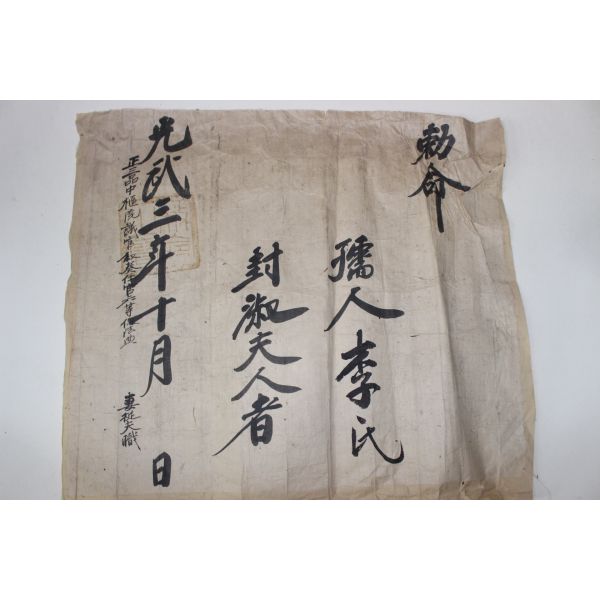 勅命
孺人李氏
封淑夫人者
光武三年十月 日
正三品中樞院議官敍奏任官六等 妻從夫職